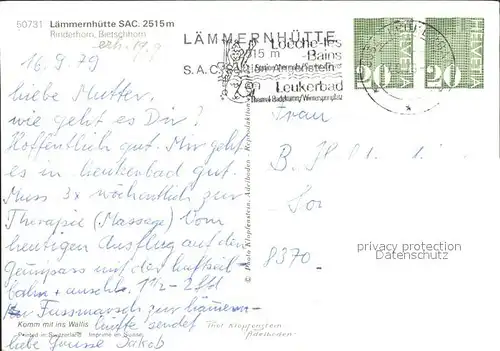 50731 Lämmernhütte SAC. 2515 m
Rinderhorn, Bietschhorn
erh. 17.9
16.9.79
liebe Mutter.
wie geht es Dir?
Hoffentlich gut. Mir geht
es in leukerbad gut.
Muss 3x wöchentlich zur
Therapie (Massage) Vom
heutigen Ausflug auf den
Gemipass mit der luftseil-
bahn + anschl. 1½-2 Std
Fussmarsch zur lämmern-
Komm mit ins Wallis
hütte sendet
Printed in Switzerland Imprimé en Suisse
liebe Grüsse Jakob
LÄMMERNHÜTTE
2515 m
S.A.C.
Loèche-les
Bains
Leukerbad
Thermal-Badekurort/Wintersportplatz
HELVETIA
20
HELVETIA
20
© Photo Klopfenstein, Adelboden - Reproduktion
Frau
8370
privacy protection
Datenschutz
Phot Klopfenstein
Adelboden